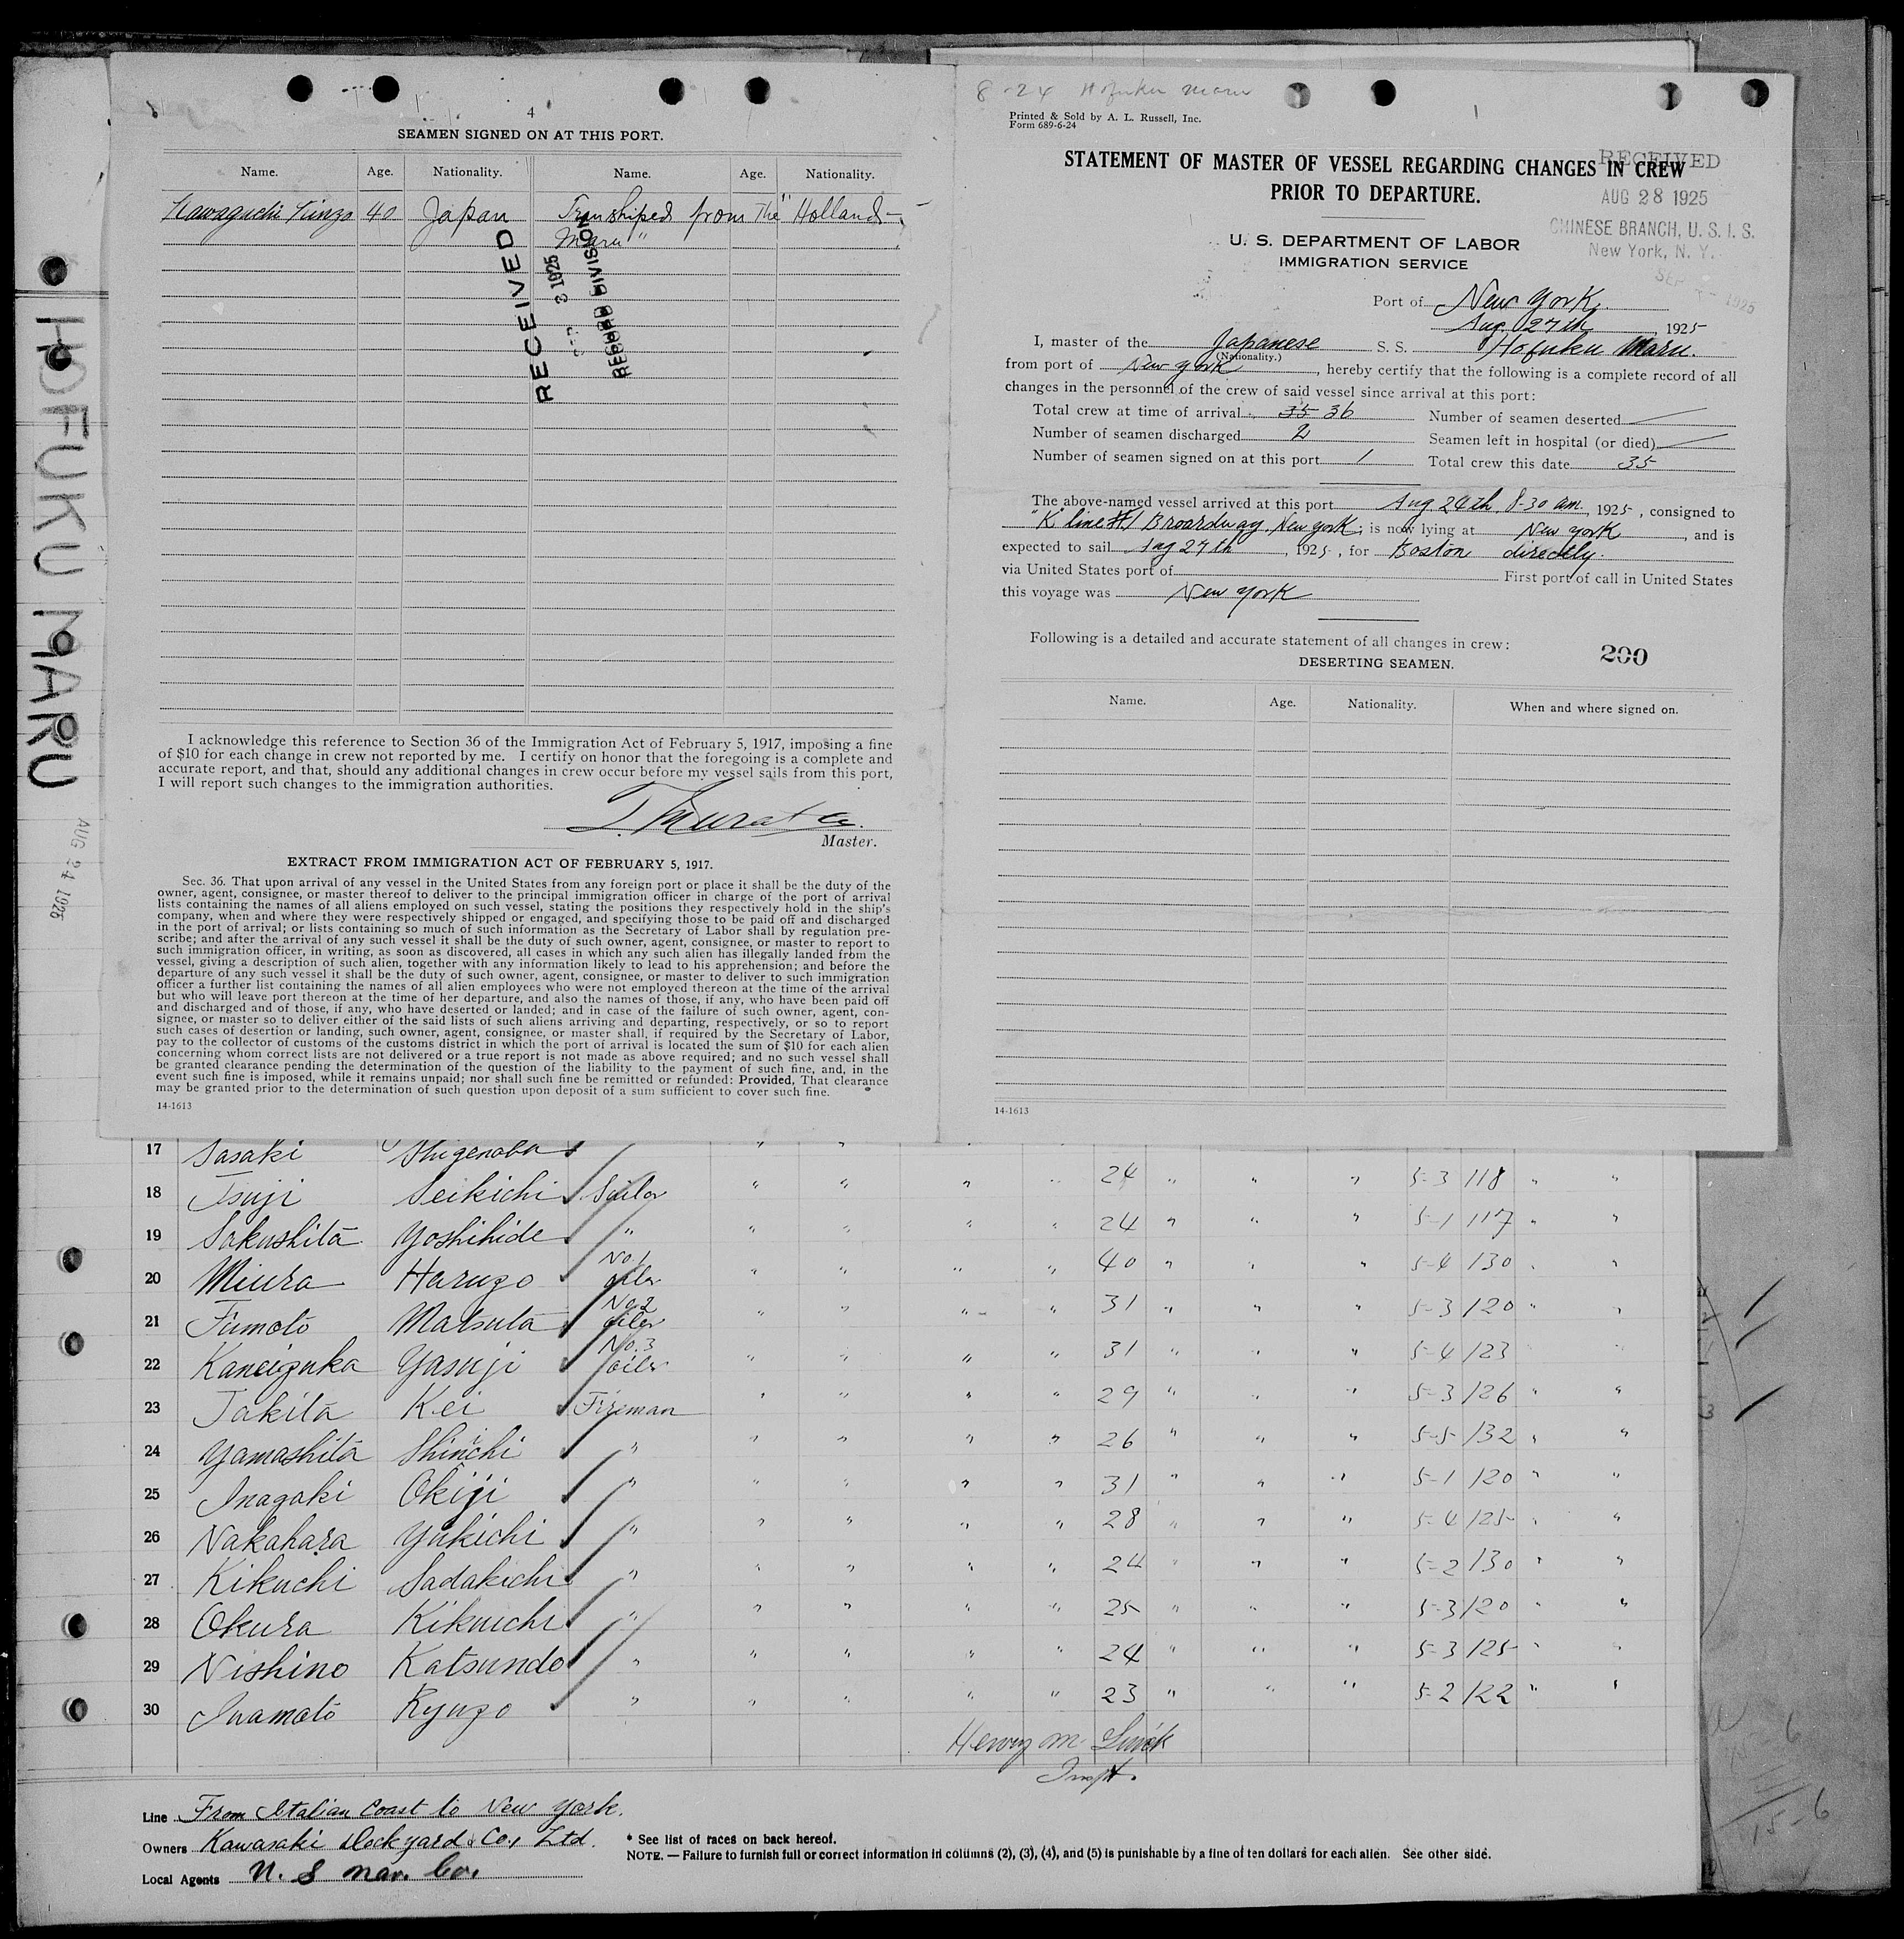 HOFUKU MARU
AUG 24 1925
4
SEAMEN SIGNED ON AT THIS PORT.
Name. Age. Nationality. Name. Age. Nationality.
Kawaguchi 40 Japan Transhiped from The "Holland-
Maru"
RECEIVED
2 1925
RECORD DIVISION
I acknowledge this reference to Section 36 of the Immigration Act of February 5, 1917, imposing a fine
of $10 for each change in crew not reported by me. I certify on honor that the foregoing is a complete and
accurate report, and that, should any additional changes in crew occur before my vessel sails from this port,
I will report such changes to the immigration authorities.
Master.
EXTRACT FROM IMMIGRATION ACT OF FEBRUARY 5, 1917.
Sec. 36. That upon arrival of any vessel in the United States from any foreign port or place it shall be the duty of the
owner, agent, consignee, or master thereof to deliver to the principal immigration officer in charge of the port of arrival
lists containing the names of all aliens employed on such vessel, stating the positions they respectively hold in the ship's
company, when and where they were respectively shipped or engaged, and specifying those to be paid off and discharged
in the port of arrival; or lists containing so much of such information as the Secretary of Labor shall by regulation pre-
scribe; and after the arrival of any such vessel it shall be the duty of such owner, agent, consignee, or master to report to
such immigration officer, in writing, as soon as discovered, all cases in which any such alien has illegally landed from the
vessel, giving a description of such alien, together with any information likely to lead to his apprehension; and before the
departure of any such vessel it shall be the duty of such owner, agent, consignee, or master to deliver to such immigration
officer a further list containing the names of all alien employees who were not employed thereon at the time of the arrival
but who will leave port thereon at the time of her departure, and also the names of those, if any, who have been paid off
and discharged and of those, if any, who have deserted or landed; and in case of the failure of such owner, agent, con-
signee, or master so to deliver either of the said lists of such aliens arriving and departing, respectively, or so to report
such cases of desertion or landing, such owner, agent, consignee, or master shall, if required by the Secretary of Labor,
pay to the collector of customs of the customs district in which the port of arrival is located the sum of $10 for each alien
concerning whom correct lists are not delivered or a true report is not made as above required; and no such vessel shall
be granted clearance pending the determination of the question of the liability to the payment of such fine, and, in the
event such fine is imposed, while it remains unpaid; nor shall such fine be remitted or refunded: Provided, That clearance
may be granted prior to the determination of such question upon deposit of a sum sufficient to cover such fine.
14-1613
8-24 Hofuku Maru
Printed & Sold by A. L. Russell, Inc.
Form 689-6-24
STATEMENT OF MASTER OF VESSEL REGARDING CHANGES IN CREW
PRIOR TO DEPARTURE.
RECEIVED
AUG 28 1925
CHINESE BRANCH, U. S. I. S.
New York, N. Y.
U. S. DEPARTMENT OF LABOR
IMMIGRATION SERVICE
Port of New York
Aug. 27th, 1925
I, master of the Japanese S. S. Hofuku Maru.
(Nationality.)
from port of New York, hereby certify that the following is a complete record of all
changes in the personnel of the crew of said vessel since arrival at this port:
Total crew at time of arrival 35 36 Number of seamen deserted
Number of seamen discharged 2 Seamen left in hospital (or died)
Number of seamen signed on at this port 1 Total crew this date 35
The above-named vessel arrived at this port Aug 24th, 8-30 am, 1925, consigned to
"K" line #1 Broardway, New York; is now lying at New York, and is
expected to sail Aug 27th, 1925, for Boston directly.
via United States port of First port of call in United States
this voyage was New York
Following is a detailed and accurate statement of all changes in crew:
200
DESERTING SEAMEN.
Name. Age. Nationality. When and where signed on.
14-1613
17 Sasaki Shigenobu
18 Tsuji Seikichi Sailor " " " " 24 " " " 5-3 118 " "
19 Sakushita Yoshihide " " " " " 24 " " " 5-1 117 " "
20 Miura Haruzo No.1 oiler " " " " 40 " " " 5-4 130 " "
21 Fumoto Matsuta No.2 oiler " " " " 31 " " " 5-3 120 " "
22 Kaneizuka Yasuji No.3 oiler " " " " 31 " " " 5-4 123 " "
23 Takita Kei Fireman " " " " 29 " " " 5-3 126 " "
24 Yamashita Shinichi " " " " " 26 " " " 5-5 132 " "
25 Inagaki Okiji " " " " " 31 " " " 5-1 120 " "
26 Nakahara Yukichi " " " " " 28 " " " 5-4 125 " "
27 Kikuchi Sadakichi " " " " " 24 " " " 5-2 130 " "
28 Okura Kikuichi " " " " " 25 " " " 5-3 120 " "
29 Nishino Katsundo " " " " " 24 " " " 5-3 125 " "
30 Iwamoto Ryuzo " " " " " 23 " " " 5-2 122 " "
Henry M
Inspt.
Line From Italian Coast to New York.
Owners Kawasaki Dockyard & Co., Ltd.
Local Agents U. S nav. Co.
* See list of races on back hereof.
NOTE. — Failure to furnish full or correct information in columns (2), (3), (4), and (5) is punishable by a fine of ten dollars for each alien. See other side.